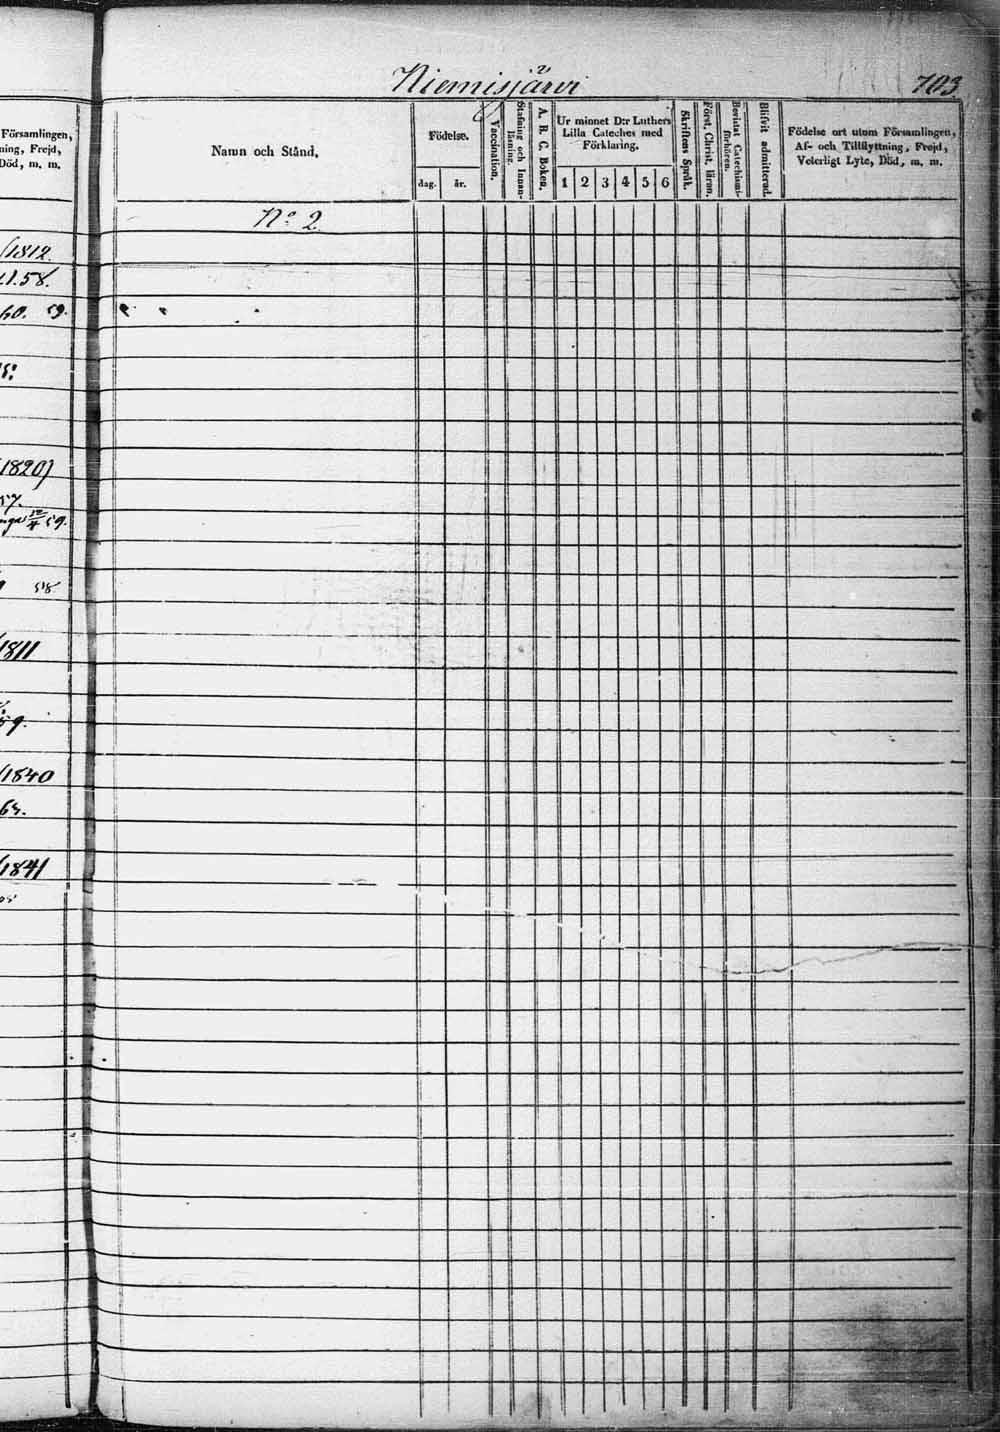 Niemisjärvi
703
Församlingen,
ning, Frejd,
Död, m. m.
Namn och Stånd.
Födelse.
dag.
år.
Vaccination.
Stafning och Innan-
läsning.
A. B. C. Boken.
Ur minnet D:r Luthers
Lilla Cateches med
Förklaring.
1 2 3 4 5 6
Skriftens Språk.
Först. Christ. läran.
Bevistat Catechismi-
förhören.
Blifvit admitterad.
Födelse ort utom Församlingen,
Af- och Tillflyttning, Frejd,
Veterligt Lyte, Död, m. m.
No 2
/1812.
1.58.
60. 59.
1820)
57.
59.
58
/1811
59.
/1840
63.
/1841